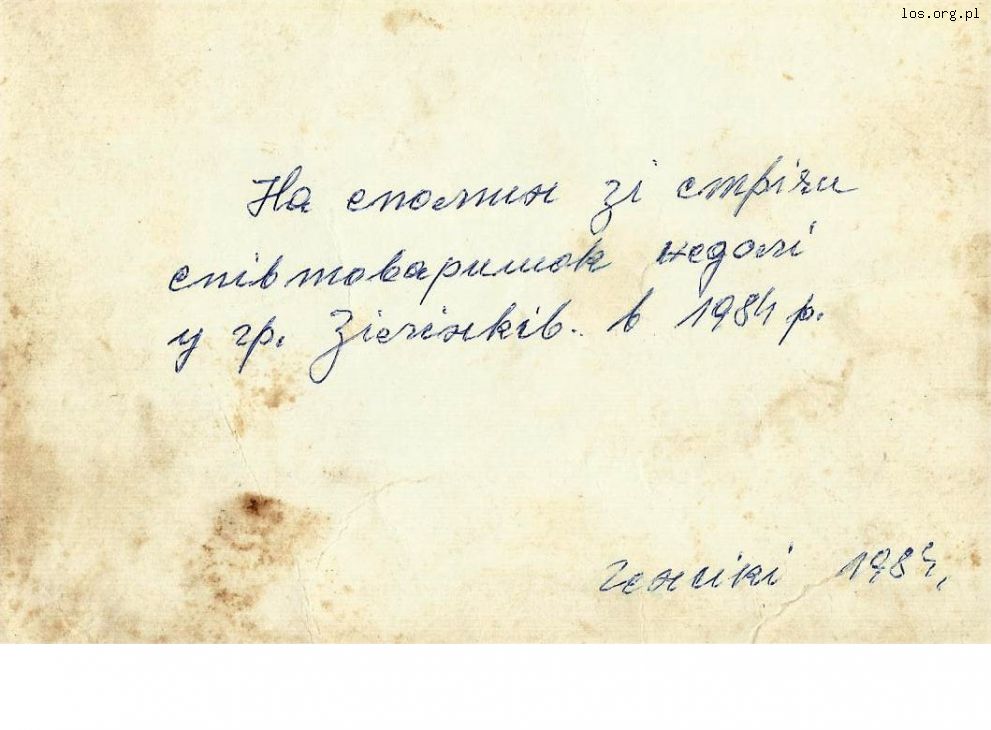 los.org.pl
На спомин зі стрічи
співтоваришок недолі
у гр. Зієлінків. в 1984 р.
1984.